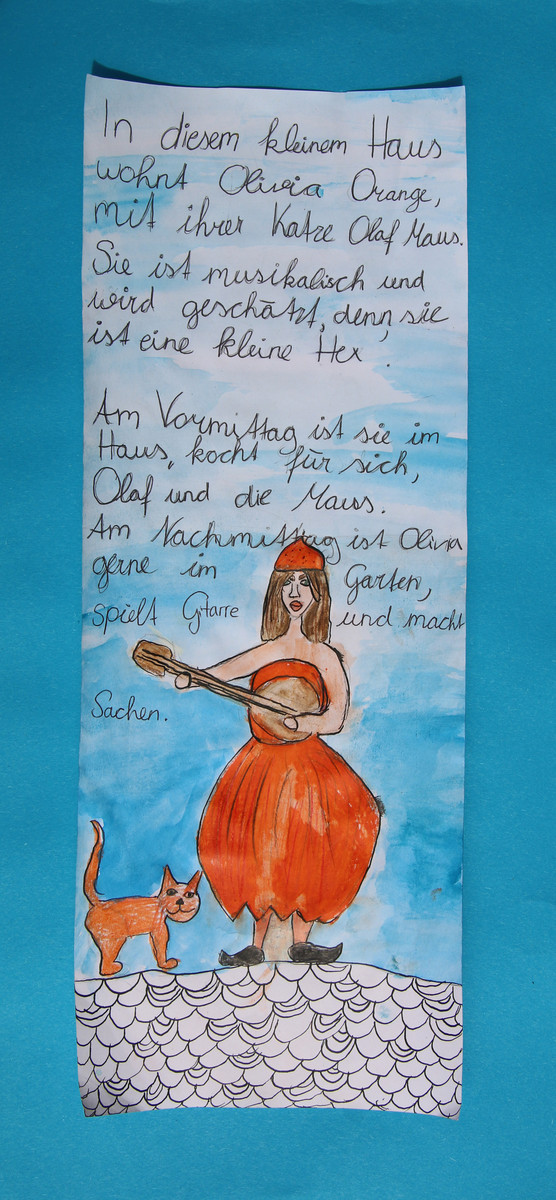 In diesem kleinem Haus
wohnt Olivia Orange,
mit ihrer Katze Olaf Maus.
Sie ist musikalisch und
wird geschätzt, denn sie
ist eine kleine Hex.
Am Vormittag ist sie im
Haus, kocht für sich,
Olaf und die Maus.
Am Nachmittag ist Olivia
gerne im Garten,
spielt Gitarre und macht
Sachen.